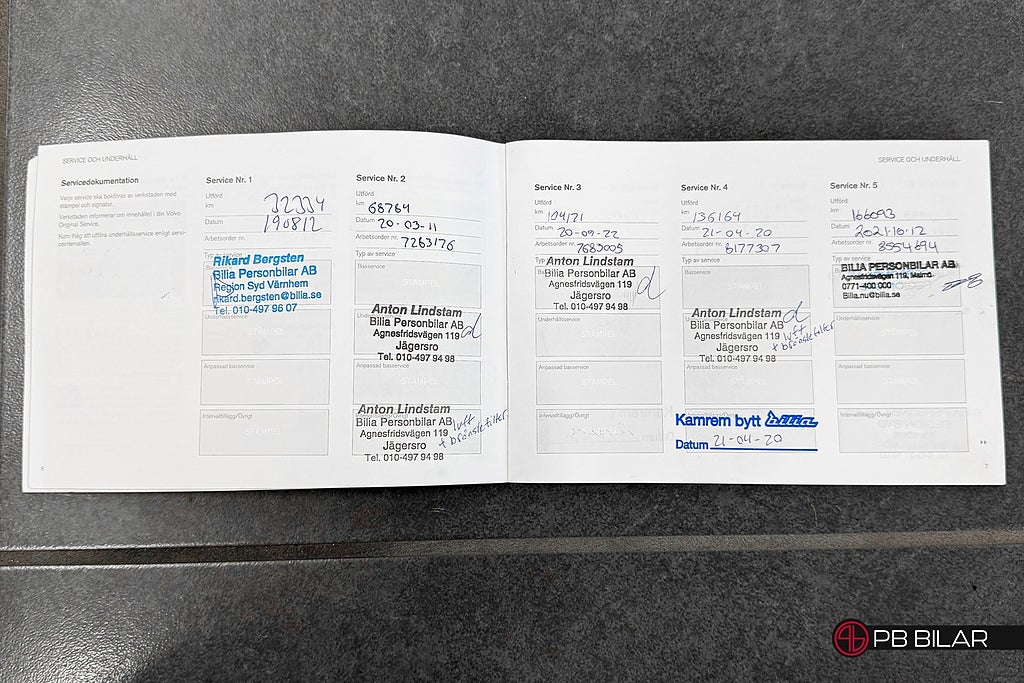 SERVICE OCH UNDERHÅLL
Servicedokumentation
Varje service ska bokföras av verkstaden med
stämpel och signatur.
Verkstaden informerar om innehållet i din Volvo
Original Service.
Kom ihåg att utföra underhållsservice enligt servi-
centervallen.
Service Nr. 1
Utförd
km 32334
Datum 190812
Arbetsorder nr.
Typ av service
Rikard Bergsten
Bilia Personbilar AB
Region Syd Värnhem
rikard.bergsten@bilia.se
Tel. 010-497 96 07
Underhållsservice
STÄMPEL
Anpassad basservice
STÄMPEL
Intervalltillägg/Övrigt
STÄMPEL
6
Service Nr. 2
Utförd
km 68764
Datum 20-03-11
Arbetsorder nr. 7263176
Typ av service
Basservice
Anton Lindstam
Bilia Personbilar AB
Agnesfridsvägen 119
Jägersro
Tel. 010-497 94 98
Anpassad basservice
STÄMPEL
Anton Lindstam
Bilia Personbilar AB
Agnesfridsvägen 119
Jägersro
Tel. 010-497 94 98
luft
+ bränslefilter
SERVICE OCH UNDERHÅLL
Service Nr. 3
Utförd
km 104171
Datum 20-09-22
Arbetsorder nr. 7683005
Typ av service
Anton Lindstam
Bilia Personbilar AB
Agnesfridsvägen 119
Jägersro
Tel. 010-497 94 98
Underhållsservice
STÄMPEL
Anpassad basservice
STÄMPEL
Intervalltillägg/Övrigt
Service Nr. 4
Utförd
km 136164
Datum 21-04-20
Arbetsorder nr. 8177307
Typ av service
Basservice
Anton Lindstam
Bilia Personbilar AB
Agnesfridsvägen 119
Jägersro
Tel. 010-497 94 98
luft
+ bränslefilter
Anpassad basservice
STÄMPEL
Kamrem bytt bilia
Datum 21-04-20
Service Nr. 5
Utförd
km 166093
Datum 2021-10-12
Arbetsorder nr. 8554694
Typ av service
BILIA PERSONBILAR AB
Agnesfridsvägen 119, Malmö
0771-400 000
Bilia.nu@bilia.se
Underhållsservice
STÄMPEL
Anpassad basservice
STÄMPEL
Intervalltillägg/Övrigt
7
PB BILAR